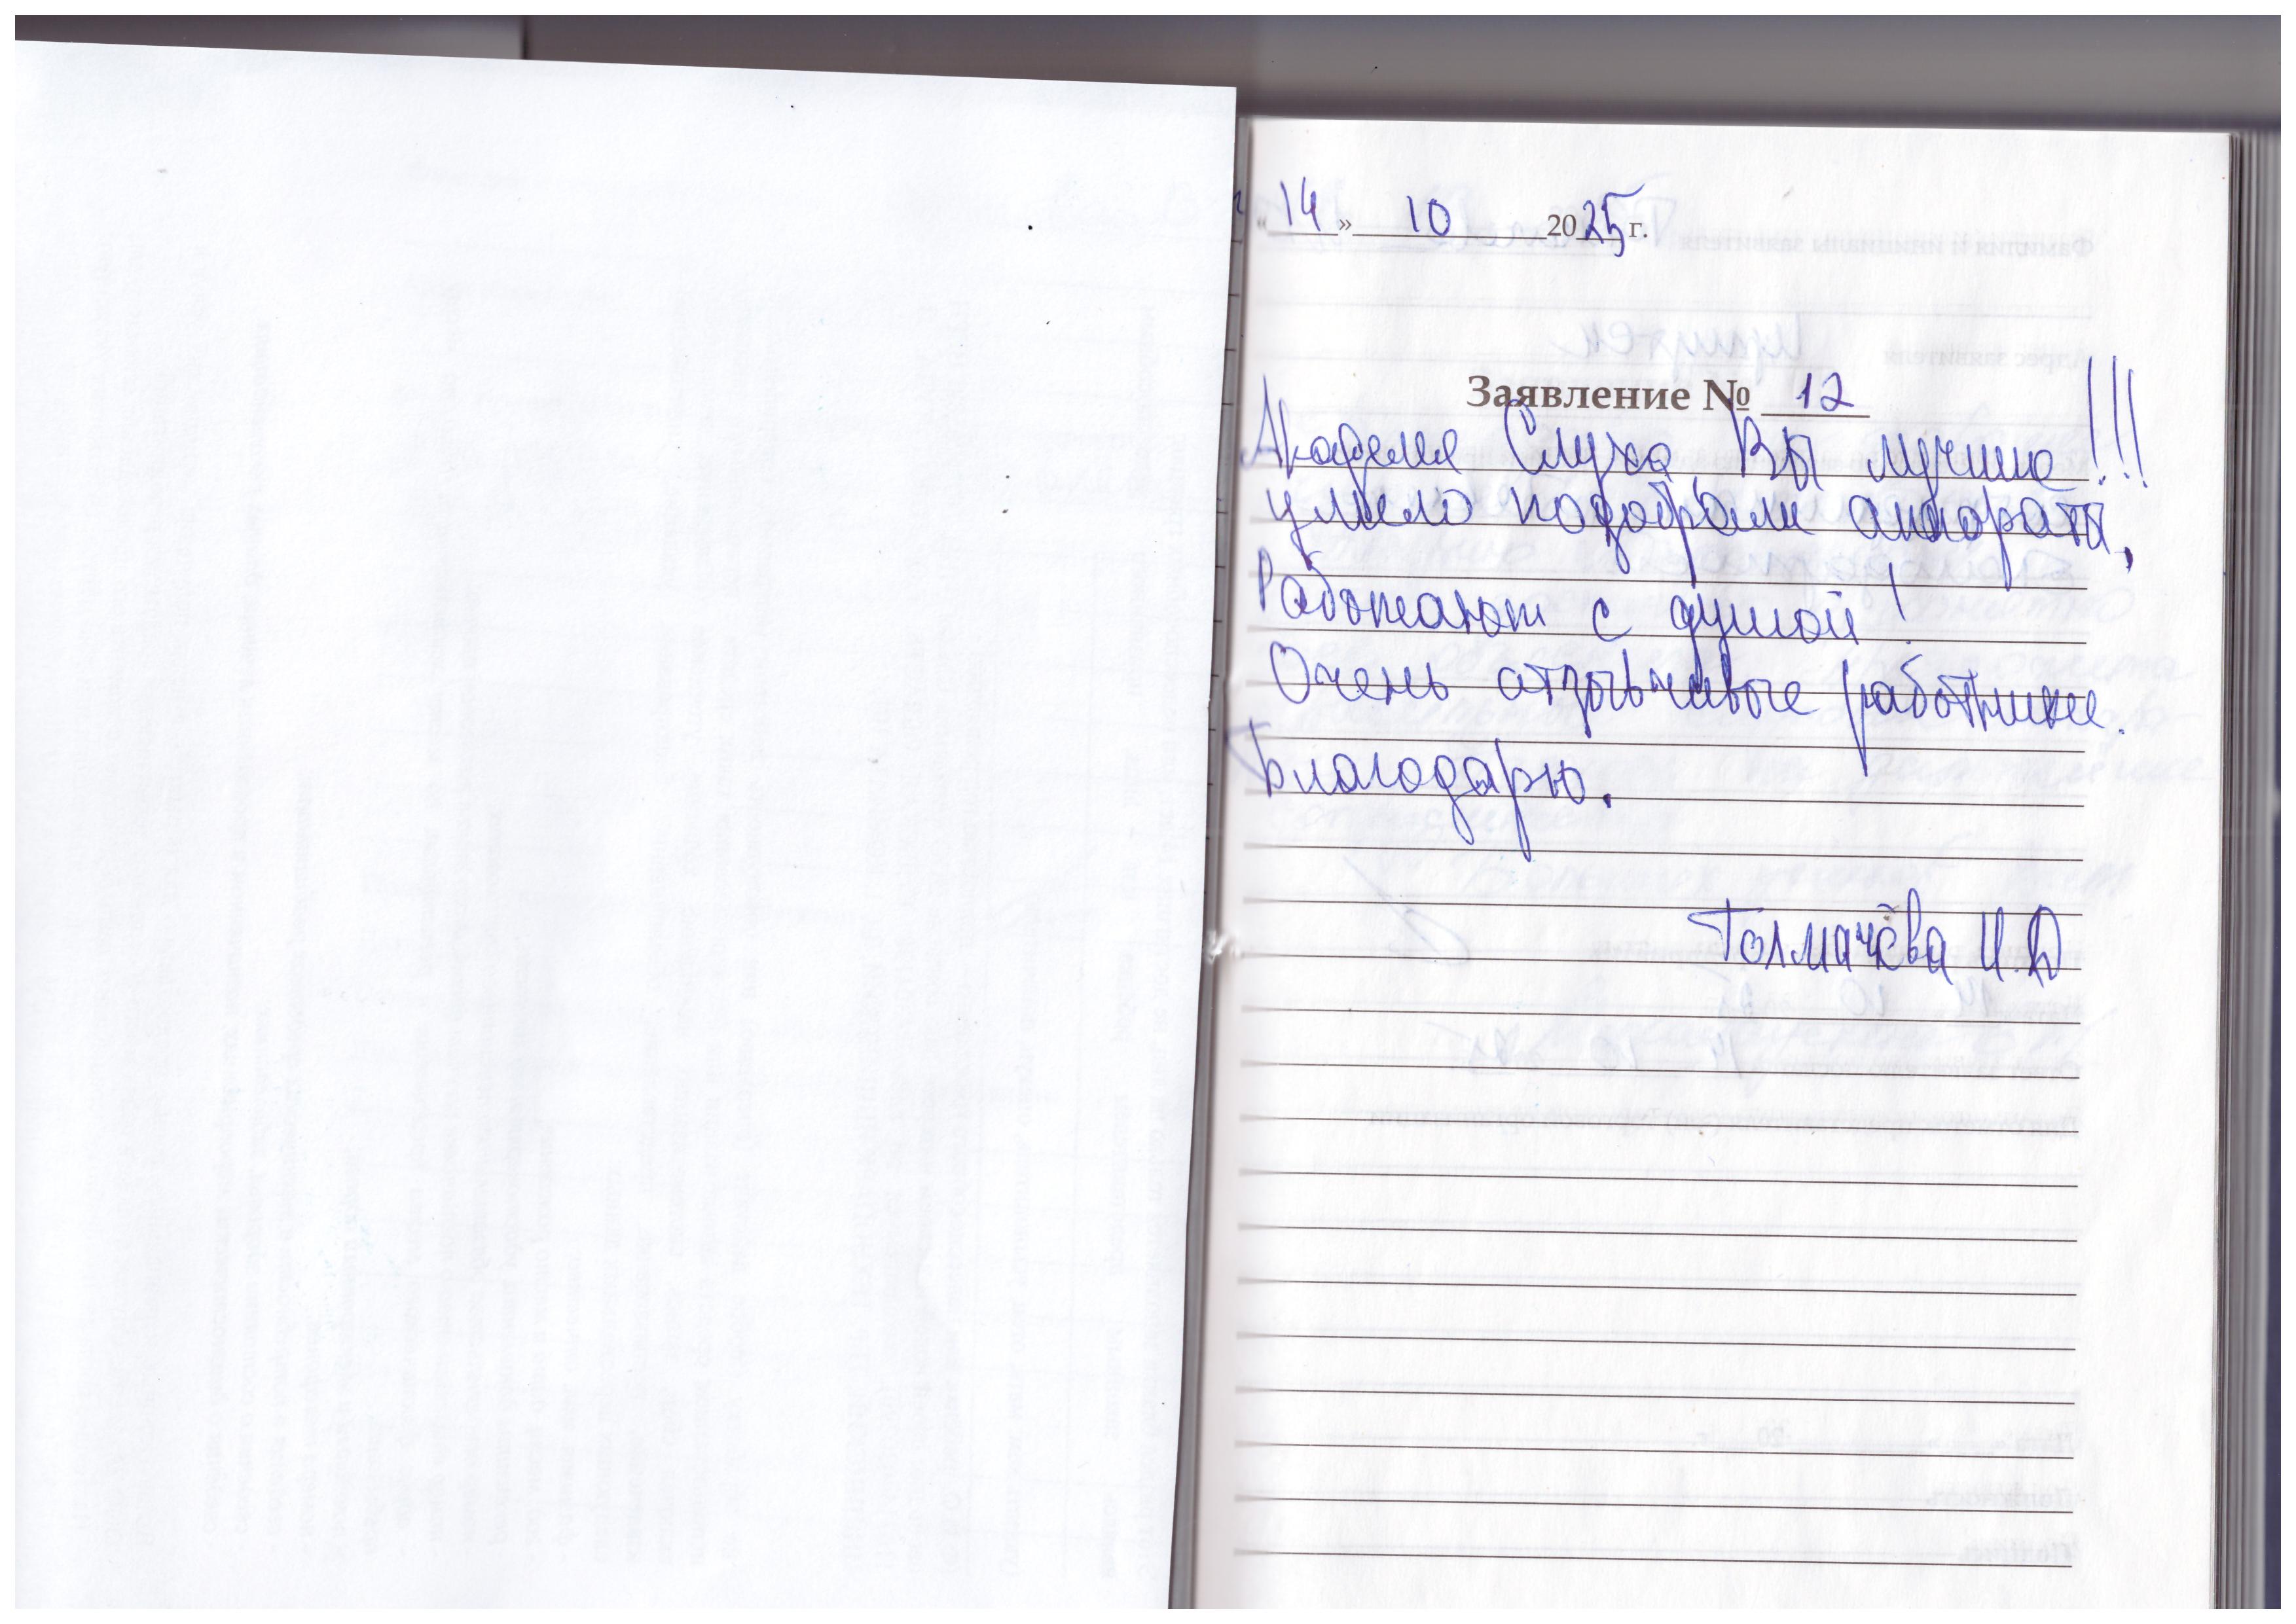 «14» 10 2025 г.
Заявление № 12
Академия Слуха Вы лучшие!!!
умело подобрали аппараты,
Работают с душой!
Очень отзывчивые работники.
Благодарю.
Толмачёва И.Д